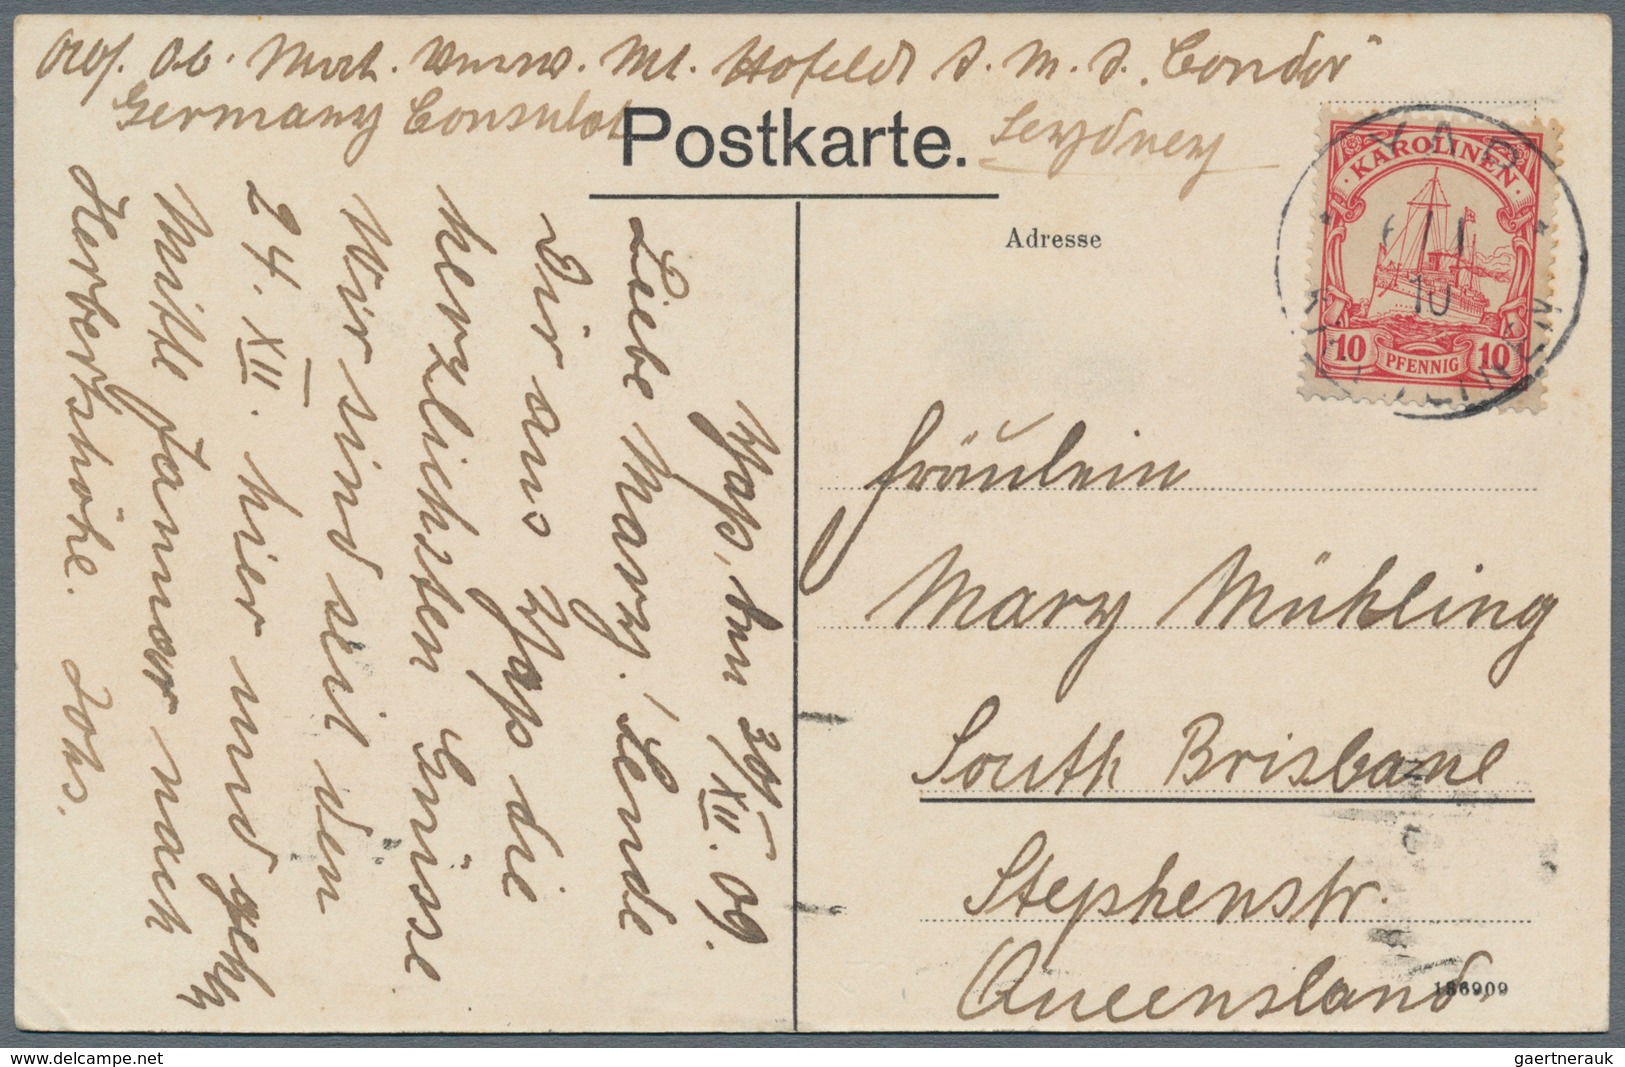 Ob. Mat. Hofeldt S.M.S. "Condor"
Germany Consulat Seydney
Postkarte.
Adresse
YAP
KAROLINEN
6/1
10
KAROLINEN
10 PFENNIG 10
Yap, den 30/XII. 09.
Liebe Mary! Sende
Dir aus Yap die
herzlichsten Grüsse
Wir sind seit den
24. XII. hier und gehn
Mitte Januar nach
Herbertshöhe. Johs.
Fräulein
Mary Mühling
South Brisbane
Stephenstr.
Queensland
186909
gaertnerauk @ Delcampe.net